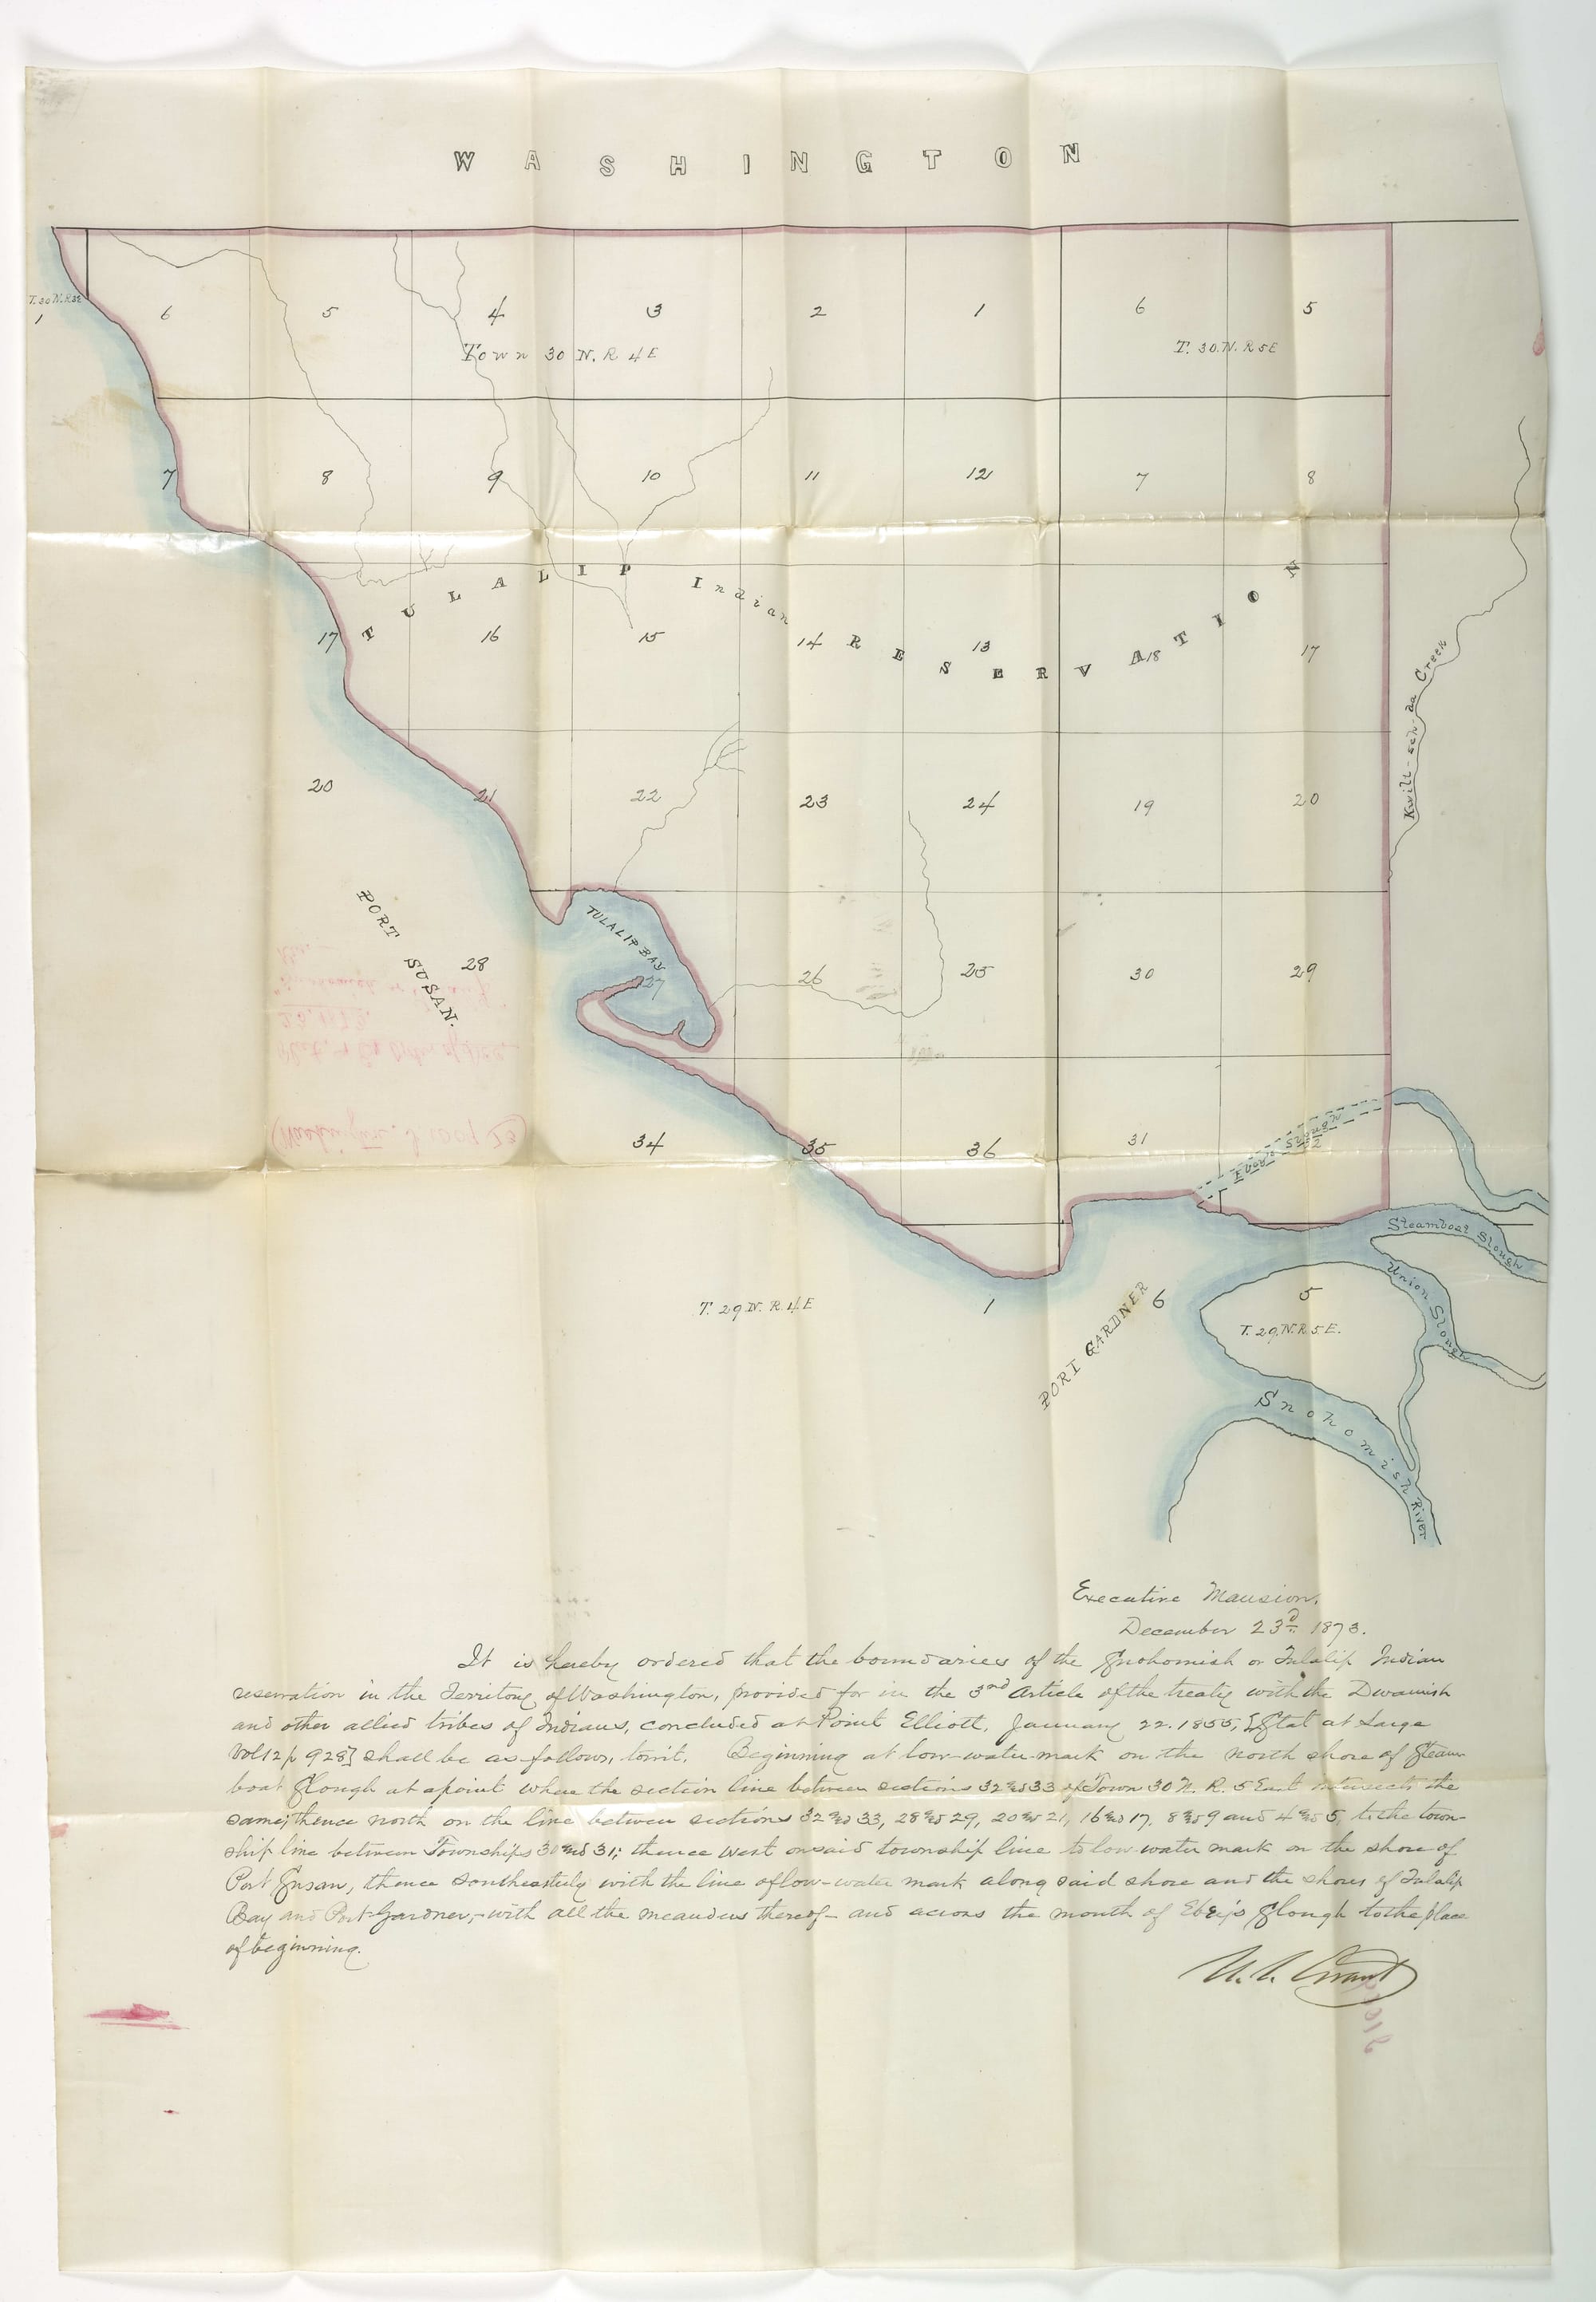 WASHINGTON
T. 30 N. R 3 E
1
6
5
4
3
2
1
6
5
Town 30 N. R 4 E
T. 30. N. R 5 E
7
8
9
10
11
12
7
8
TULALIP Indian RESERVATION
17
16
15
14
13
18
17
Kwill-seh-da Creek
20
21
22
23
24
19
20
PORT SUSAN.
28
TULALIP BAY
27
26
25
30
29
34
35
36
31
Ebey's Slough
32
Steamboat Slough
Union Slough
T. 29 N. R. 4 E
1
PORT GARDNER
6
5
T. 29. N. R 5 E.
Snohomish River
Executive Mansion.
December 23d. 1873.
It is hereby ordered that the boundaries of the Snohomish or Tulalip Indian
reservation in the Territory of Washington, provided for in the 3rd Article of the treaty with the Dwamish
and other allied tribes of Indians, concluded at Point Elliott, January 22. 1855, [Stat at Large
Vol 12 p 928] shall be as follows, towit. Beginning at low-water-mark on the north shore of Steam-
boat Slough at a point where the section line between sections 32 and 33 of Town 30 N. R. 5 East intersects the
same; thence north on the line between sections 32 and 33, 28 and 29, 20 and 21, 16 and 17, 8 and 9 and 4 and 5, to the town-
ship line between Townships 30 and 31; thence west on said township line to low-water mark on the shore of
Port Susan, thence southeasterly with the line of low-water mark along said shore and the shores of Tulalip
Bay and Port Gardner, with all the meanders thereof- and across the mouth of Ebey's Slough to the place
of beginning.
U. S. Grant